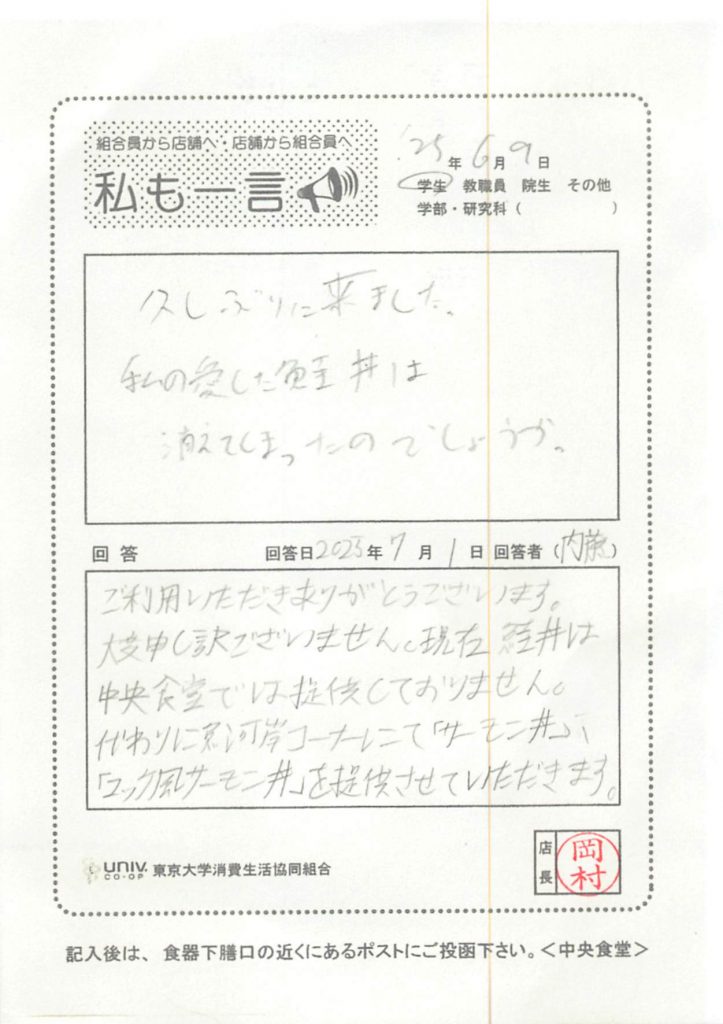 組合員から店舗へ・店舗から組合員へ
私も一言
'25年6月9日
学生 教職員 院生 その他
学部・研究科（ ）
久しぶりに来ました。
私の愛した鮭丼は
消えてしまったのでしょうか。
回答 回答日2025年7月1日 回答者（内藤）
ご利用いただきありがとうございます。
大変申し訳ございません。現在 鮭丼は
中央食堂では提供しておりません。
代わりに魚河岸コーナーにて「サーモン丼」、
「ユッケ風サーモン丼」を提供させていただきます。
univ. CO-OP 東京大学消費生活協同組合
店長 岡村
記入後は、食器下膳口の近くにあるポストにご投函下さい。＜中央食堂＞